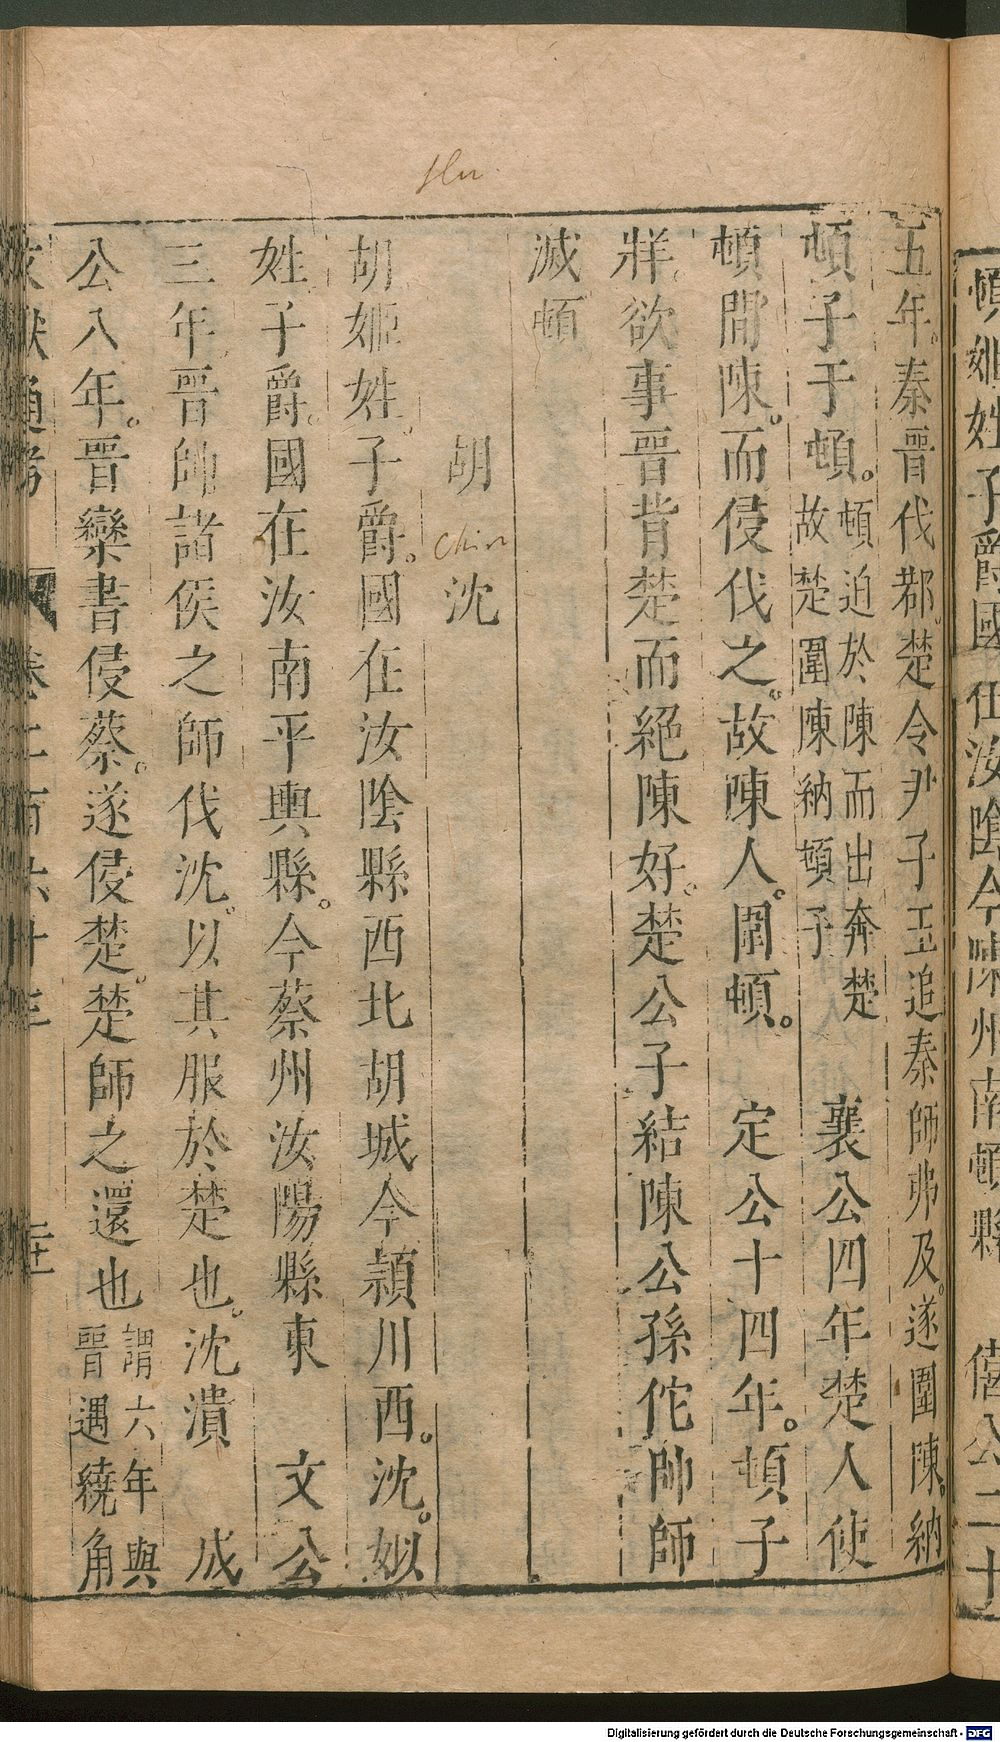 頓姬姓子爵國在汝陰今陳州南頓縣　僖公二十
Hu
五年。秦晉伐鄀。楚令尹子玉追秦師弗及。遂圍陳。納
頓子于頓。頓迫於陳而出奔楚故楚圍陳納頓子　襄公四年楚人使
頓間陳。而侵伐之。故陳人。圍頓。　定公十四年。頓子
牂欲事晉背楚而絕陳好。楚公子結陳公孫佗帥師
滅頓
胡　沈
Chin
胡姬姓子爵。國在汝陰縣西北胡城今潁川西。沈。姒
姓子爵。國在汝南平輿縣。今蔡州汝陽縣東　文公
三年晉師諸侯之師伐沈。以其服於楚也。沈潰　成
公八年。晉欒書侵蔡。遂侵楚。楚師之還也謂六年與晉遇繞角
文獻通考　卷二百六十三　二十二
Digitalisierung gefördert durch die Deutsche Forschungsgemeinschaft - DFG